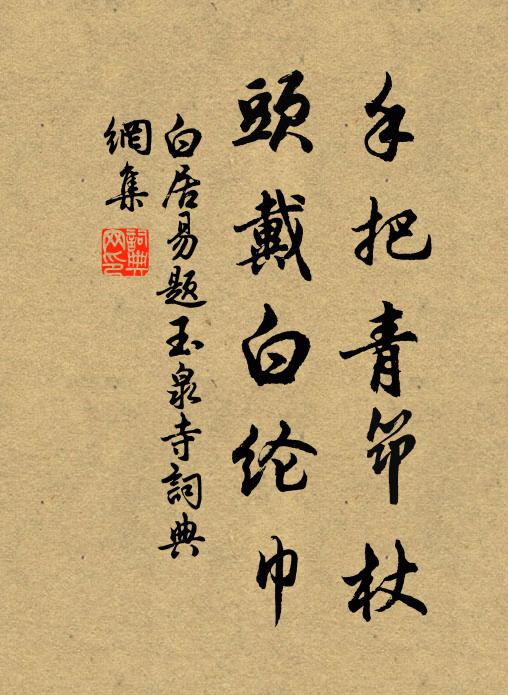 手把青筇杖
頭戴白纶巾
白居易題玉泉寺詞典
網集
詞典
网印